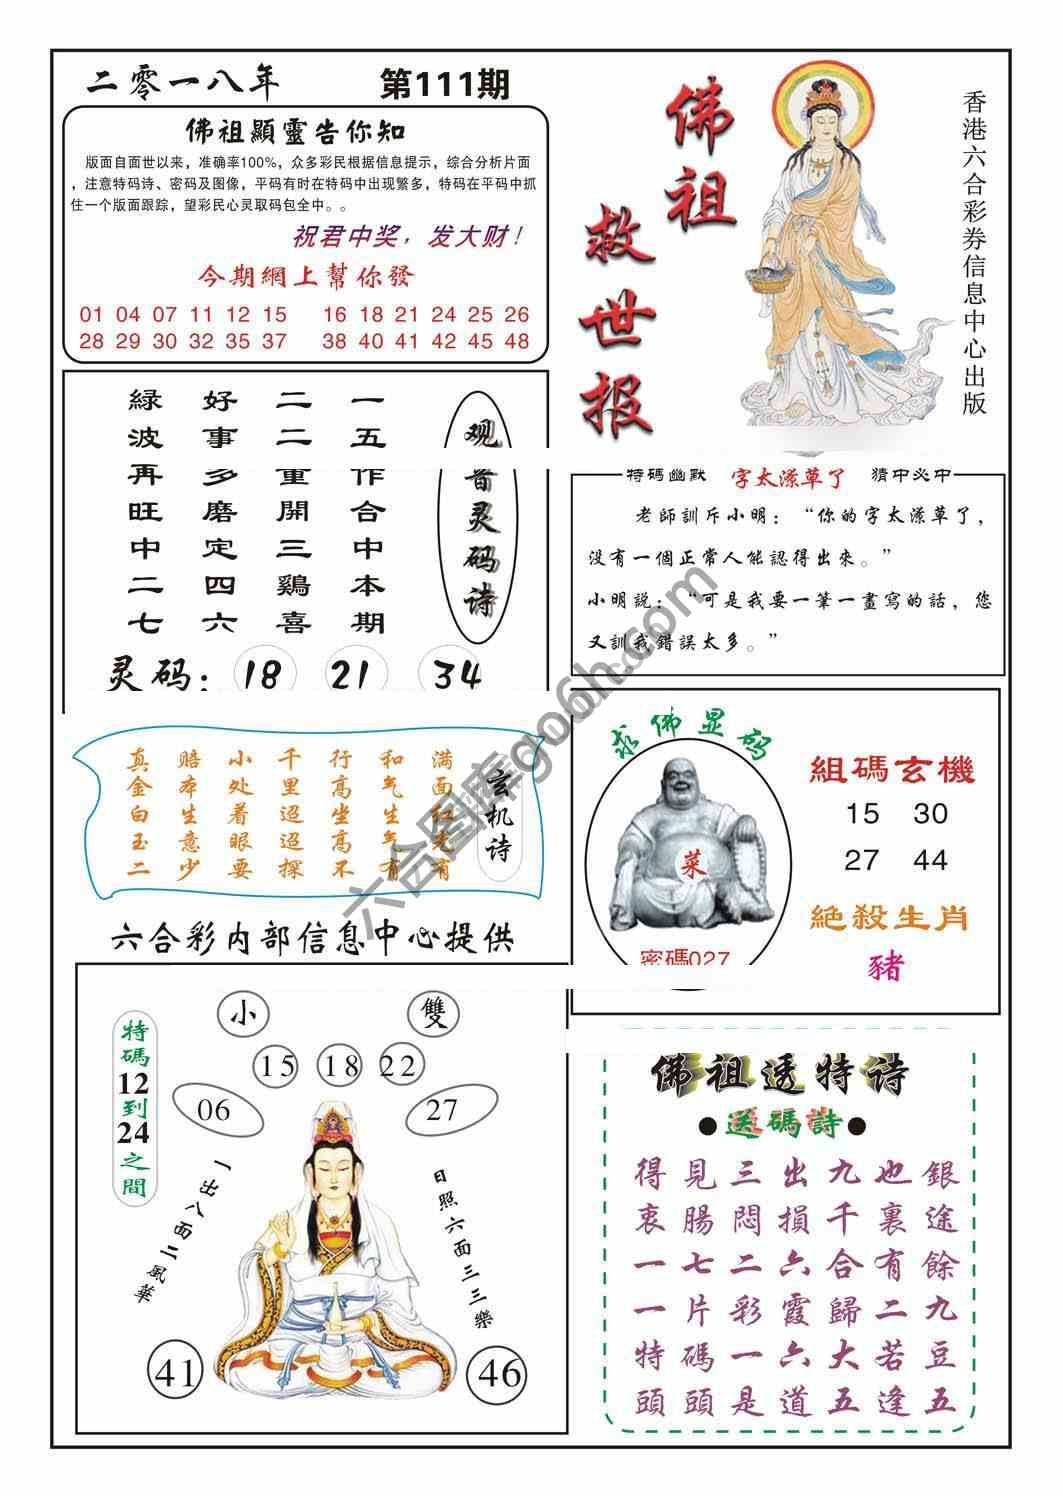 二零一八年
第111期
佛祖顯靈告你知
版面自面世以来，准确率100%，众多彩民根据信息提示，综合分析片面
，注意特码诗、密码及图像，平码有时在特码中出现繁多，特码在平码中抓
住一个版面跟踪，望彩民心灵取码包全中。。
祝君中奖，发大财！
今期網上幫你發
01 04 07 11 12 15 16 18 21 24 25 26
28 29 30 32 35 37 38 40 41 44 45 48
佛祖
救世报
香港六合彩券信息中心出版
观音灵码诗
一五作合中本期
二二重開三鷄喜
好事多磨定四六
緑波再旺中二七
灵码：18 21 34
特碼幽默 字太潦草了 猜中必中
老師訓斥小明：“你的字太潦草了，
没有一個正常人能認得出來。”
小明説：“可是我要一筆一畫寫的話，您
又訓我錯誤太多。”
玄机诗
满面红光有
和气生气有
行高坐高不
千里迢迢探
小处着眼要
赔本生意少
真金白玉二
求佛显码
菜
密碼027
組碼玄機
15 30
27 44
絕殺生肖
豬
六合彩内部信息中心提供
特碼12到24之間
小
雙
15 18 22
06
27
一出八面二風華
日照六面三三樂
41
46
佛祖透特诗
●送碼詩●
得見三出九也銀
衷腸悶損千裏途
一七二六合有餘
一片彩霞歸二九
特碼一六大若豆
頭頭是道五逢五
六合图库go6h.com